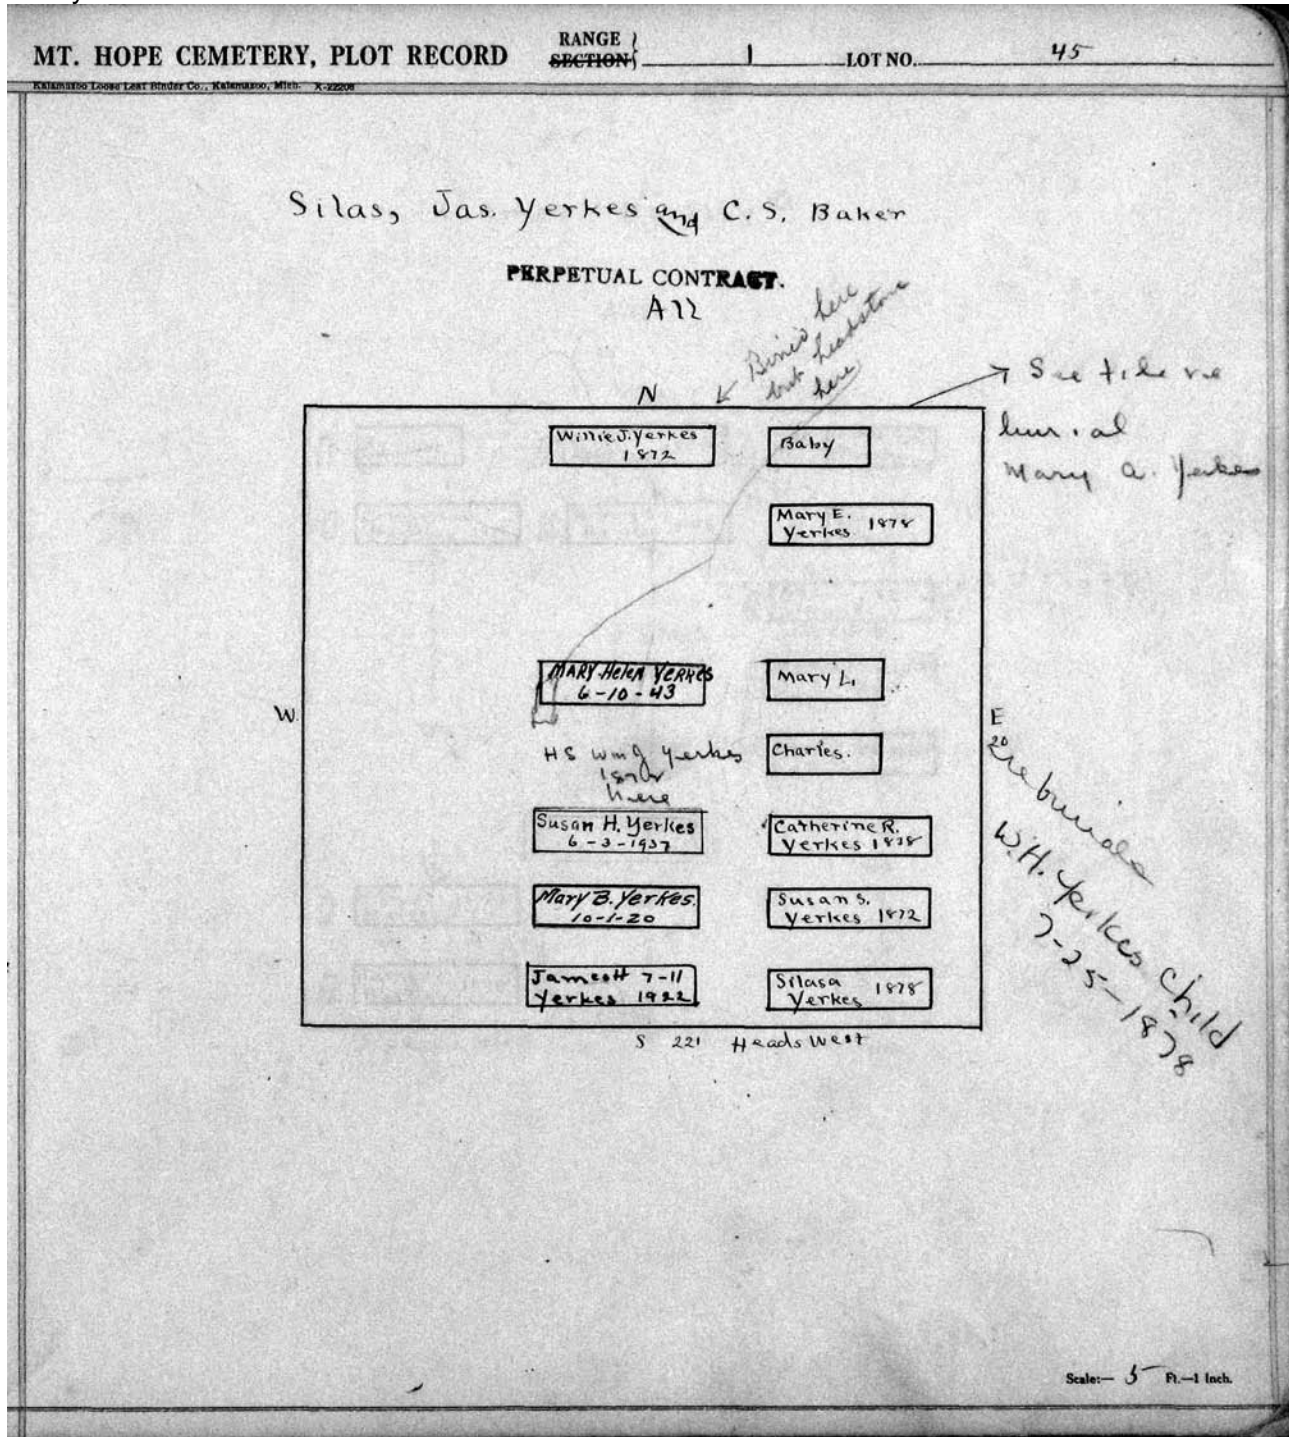 MT. HOPE CEMETERY, PLOT RECORD
RANGE
SECTION 1 LOT NO. 45
Kalamazoo Loose Leaf Binder Co., Kalamazoo, Mich. X-22208
Silas, Jas. Yerkes and C. S. Baker
PERPETUAL CONTRACT.
here
but headstone
here
N
See file re
burial
Mary A. Yerkes
Willie J. Yerkes
1872
Baby
Mary E. 1878
Yerkes
MARY HELEN YERKES
6-10-43
Mary L.
W.
E
HS Wm J Yerkes
1872
here
Charles.
Susan H. Yerkes
6-3-1937
Catherine R.
Yerkes 1878
Mary B. Yerkes.
10-1-20
Susan S.
Yerkes 1872
James H 7-11
Yerkes 1922
Silas A 1878
Yerkes
W.H. Yerkes child
7-25-1878
S 221 Heads West
Scale:— 5 Ft.—1 Inch.